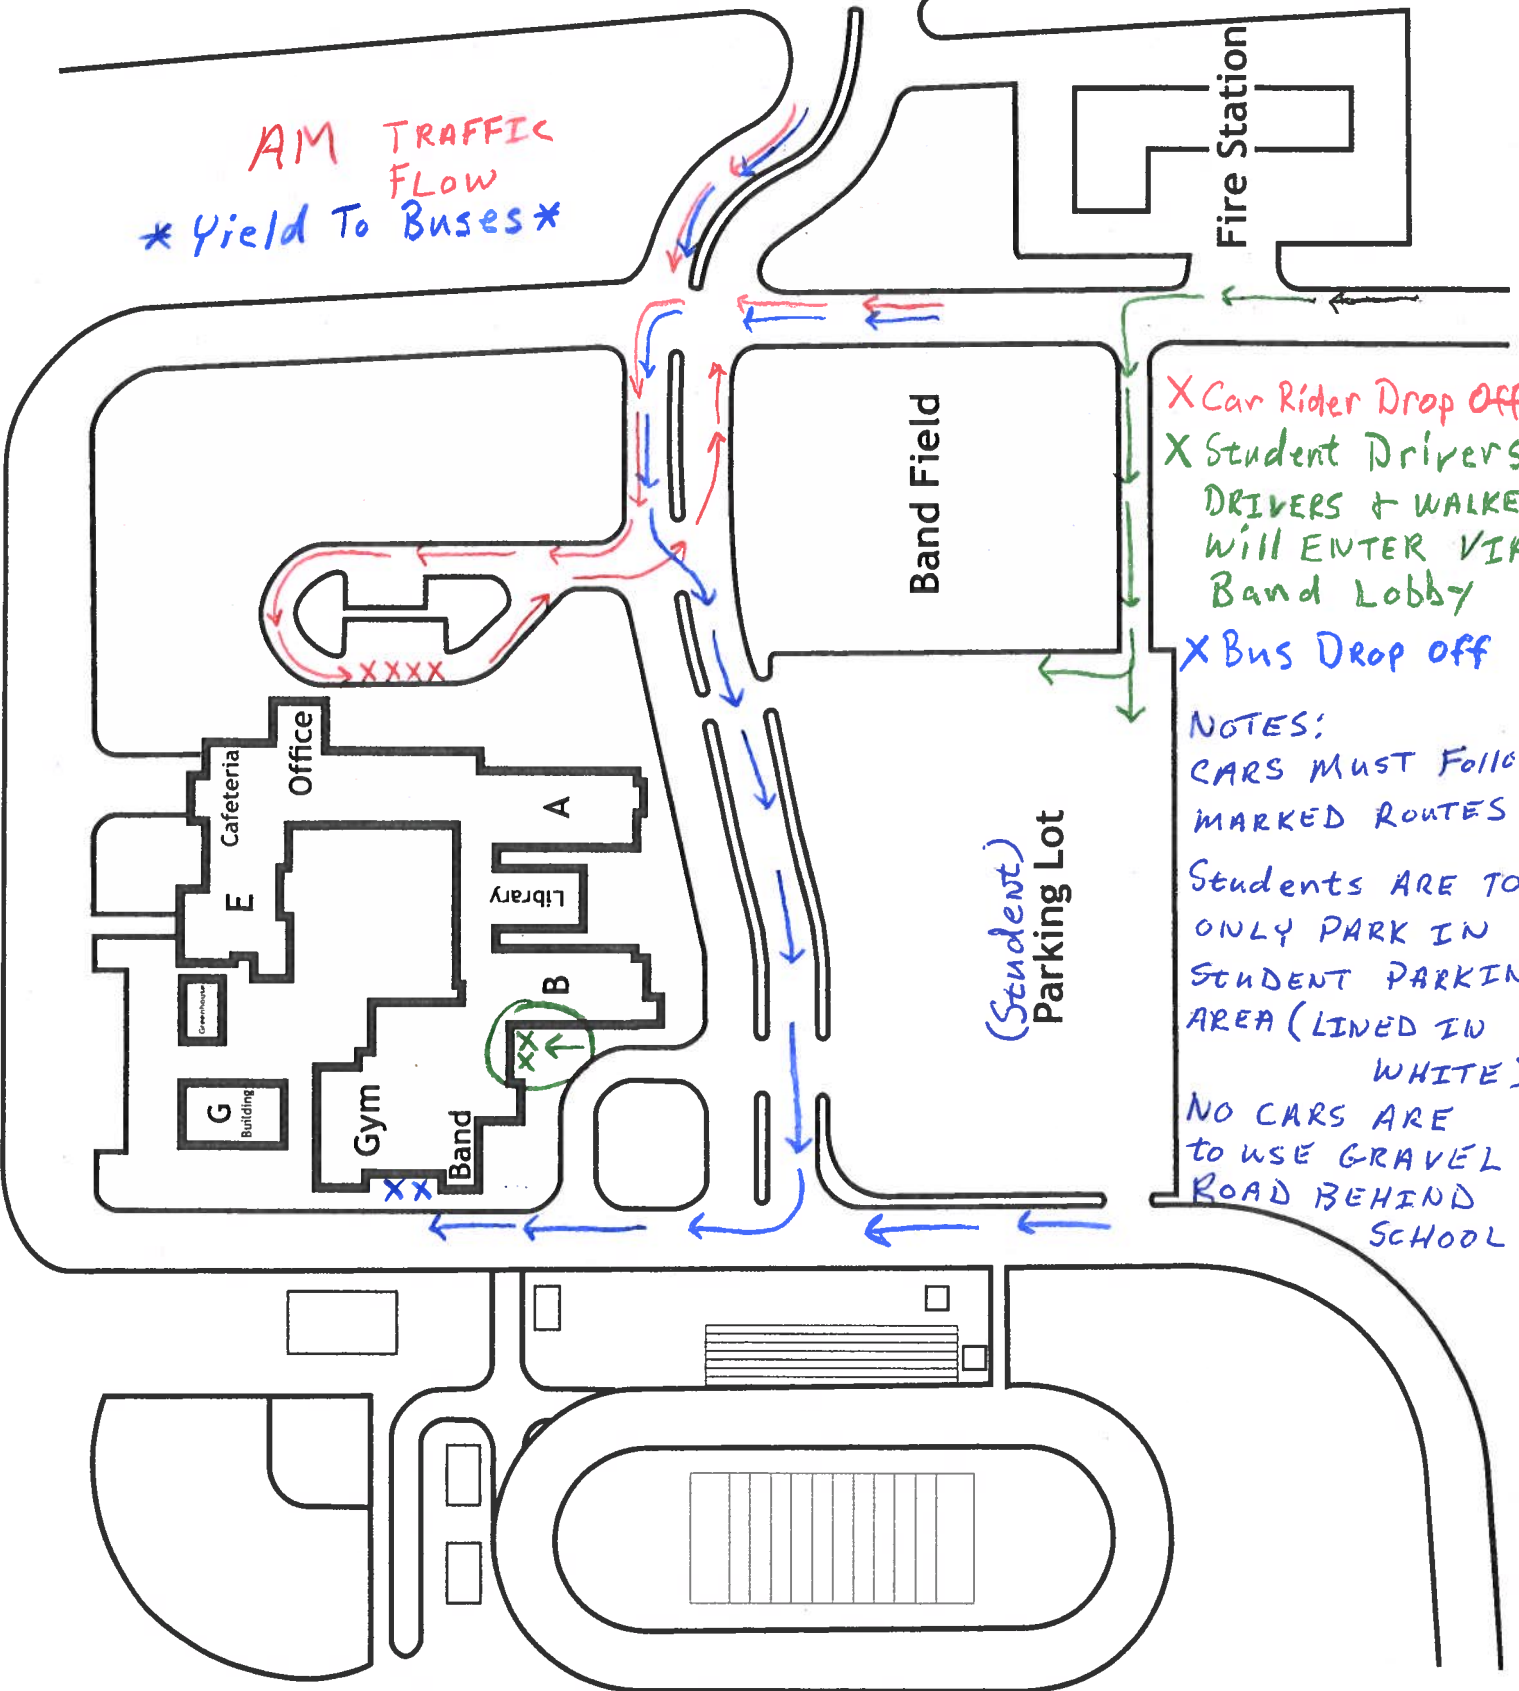 AM TRAFFIC
FLOW
* Yield To Buses *
Fire Station
X Car Rider Drop Off
X Student Drivers
DRIVERS & WALKE
Will ENTER VIA
Band Lobby
X Bus Drop off
NOTES:
CARS MUST Follo
MARKED ROUTES
Students ARE TO
ONLY PARK IN
STUDENT PARKIN
AREA (LINED IN
WHITE)
NO CARS ARE
to USE GRAVEL
ROAD BEHIND
SCHOOL
Band Field
(Student)
Parking Lot
XXXX
Office
Cafeteria
A
Library
E
B
Greenhouse
XX
G
Building
Gym
Band
XX